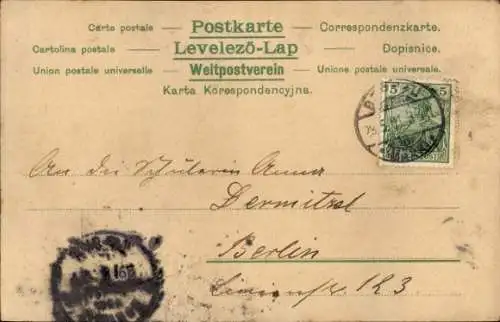 Carte postale — Postkarte — Correspondenzkarte.
Cartolina postale — Levelező-Lap — Dopisnice.
Union postale universelle — Weltpostverein — Unione postale universale.
Karta Korespondencyjna.
5 5
An die Schülerin Anna
Dermitzel
Berlin
123